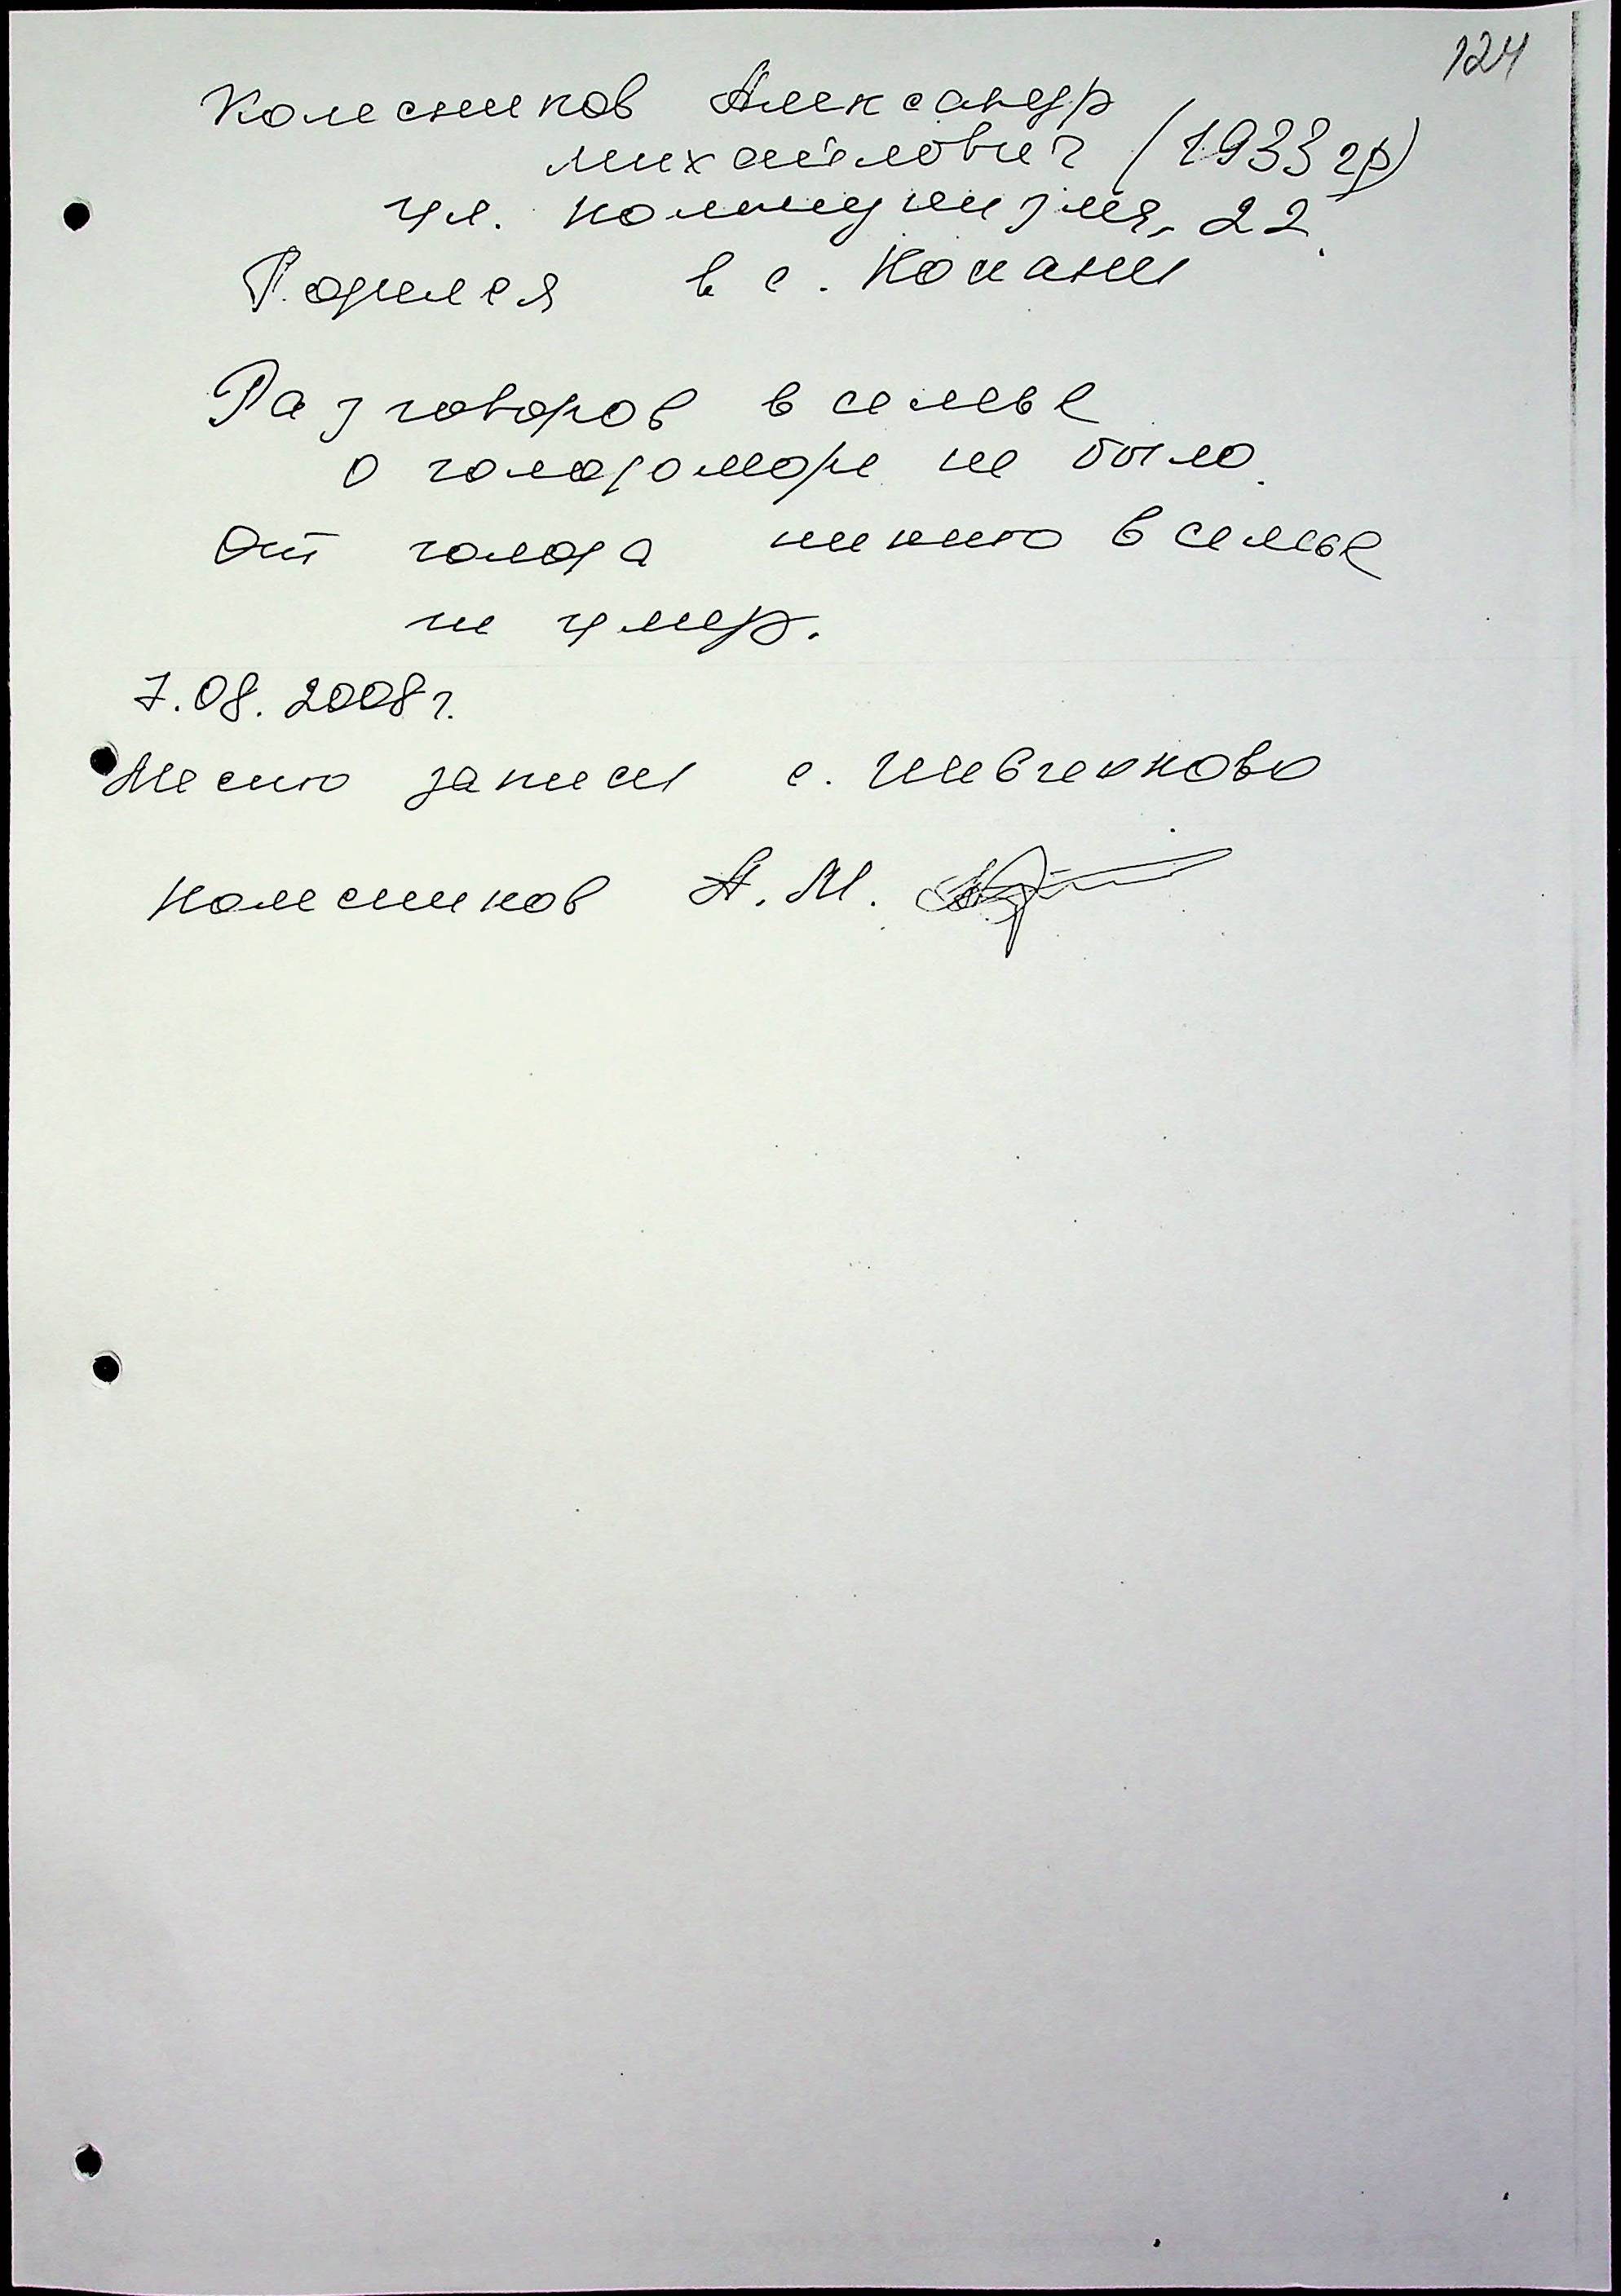 124
Колесников Александр
Михайлович (1933 гр)
ул. Коммунизма, 22.
Родился в с. Копани
Разговоров в семье
о голодоморе не было.
От голода никто в семье
не умер.
7.08.2008 г.
Место записи с. Шевченково
Колесников А. М.